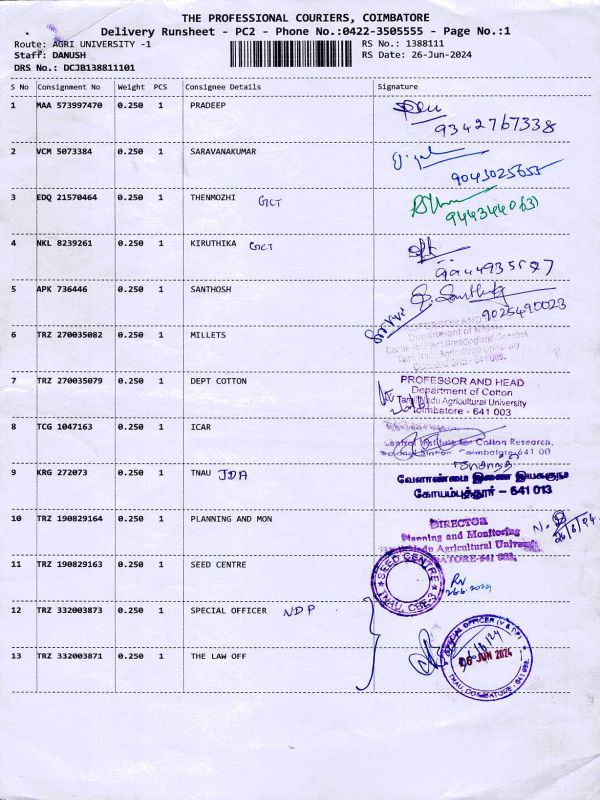 THE PROFESSIONAL COURIERS, COIMBATORE
Delivery Runsheet - PC2 - Phone No.:0422-3505555 - Page No.:1
Route: AGRI UNIVERSITY -1
RS No.: 1388111
Staff: DANUSH
RS Date: 26-Jun-2024
DRS No.: DCJB138811101
S No Consignment No Weight PCS Consignee Details Signature
1 MAA 573997470 0.250 1 PRADEEP
9342767338
2 VCM 5073384 0.250 1 SARAVANAKUMAR
9043025655
3 EDQ 21570464 0.250 1 THENMOZHI GCT
4 NKL 8239261 0.250 1 KIRUTHIKA GCT
5 APK 736446 0.250 1 SANTHOSH
9025490023
6 TRZ 270035082 0.250 1 MILLETS
7 TRZ 270035079 0.250 1 DEPT COTTON
PROFESSOR AND HEAD
Department of Cotton
Tamil Nadu Agricultural University
Coimbatore - 641 003
8 TCG 1047163 0.250 1 ICAR
Central Institute for Cotton Research,
9 KRG 272073 0.250 1 TNAU JDA
வேளாண்மை இணை இயக்குநர்
கோயம்புத்தூர் - 641 013
10 TRZ 190829164 0.250 1 PLANNING AND MON
DIRECTOR
Planning and Monitoring
Tamil Nadu Agricultural University
COIMBATORE-641 003.
26/6/24
11 TRZ 190829163 0.250 1 SEED CENTRE
SEED CENTRE
TNAU, CBE-3
26.6.2024
12 TRZ 332003873 0.250 1 SPECIAL OFFICER NDP
13 TRZ 332003871 0.250 1 THE LAW OFF
SPECIAL OFFICER
26 JUN 2024
TNAU, COIMBATORE - 641 003.